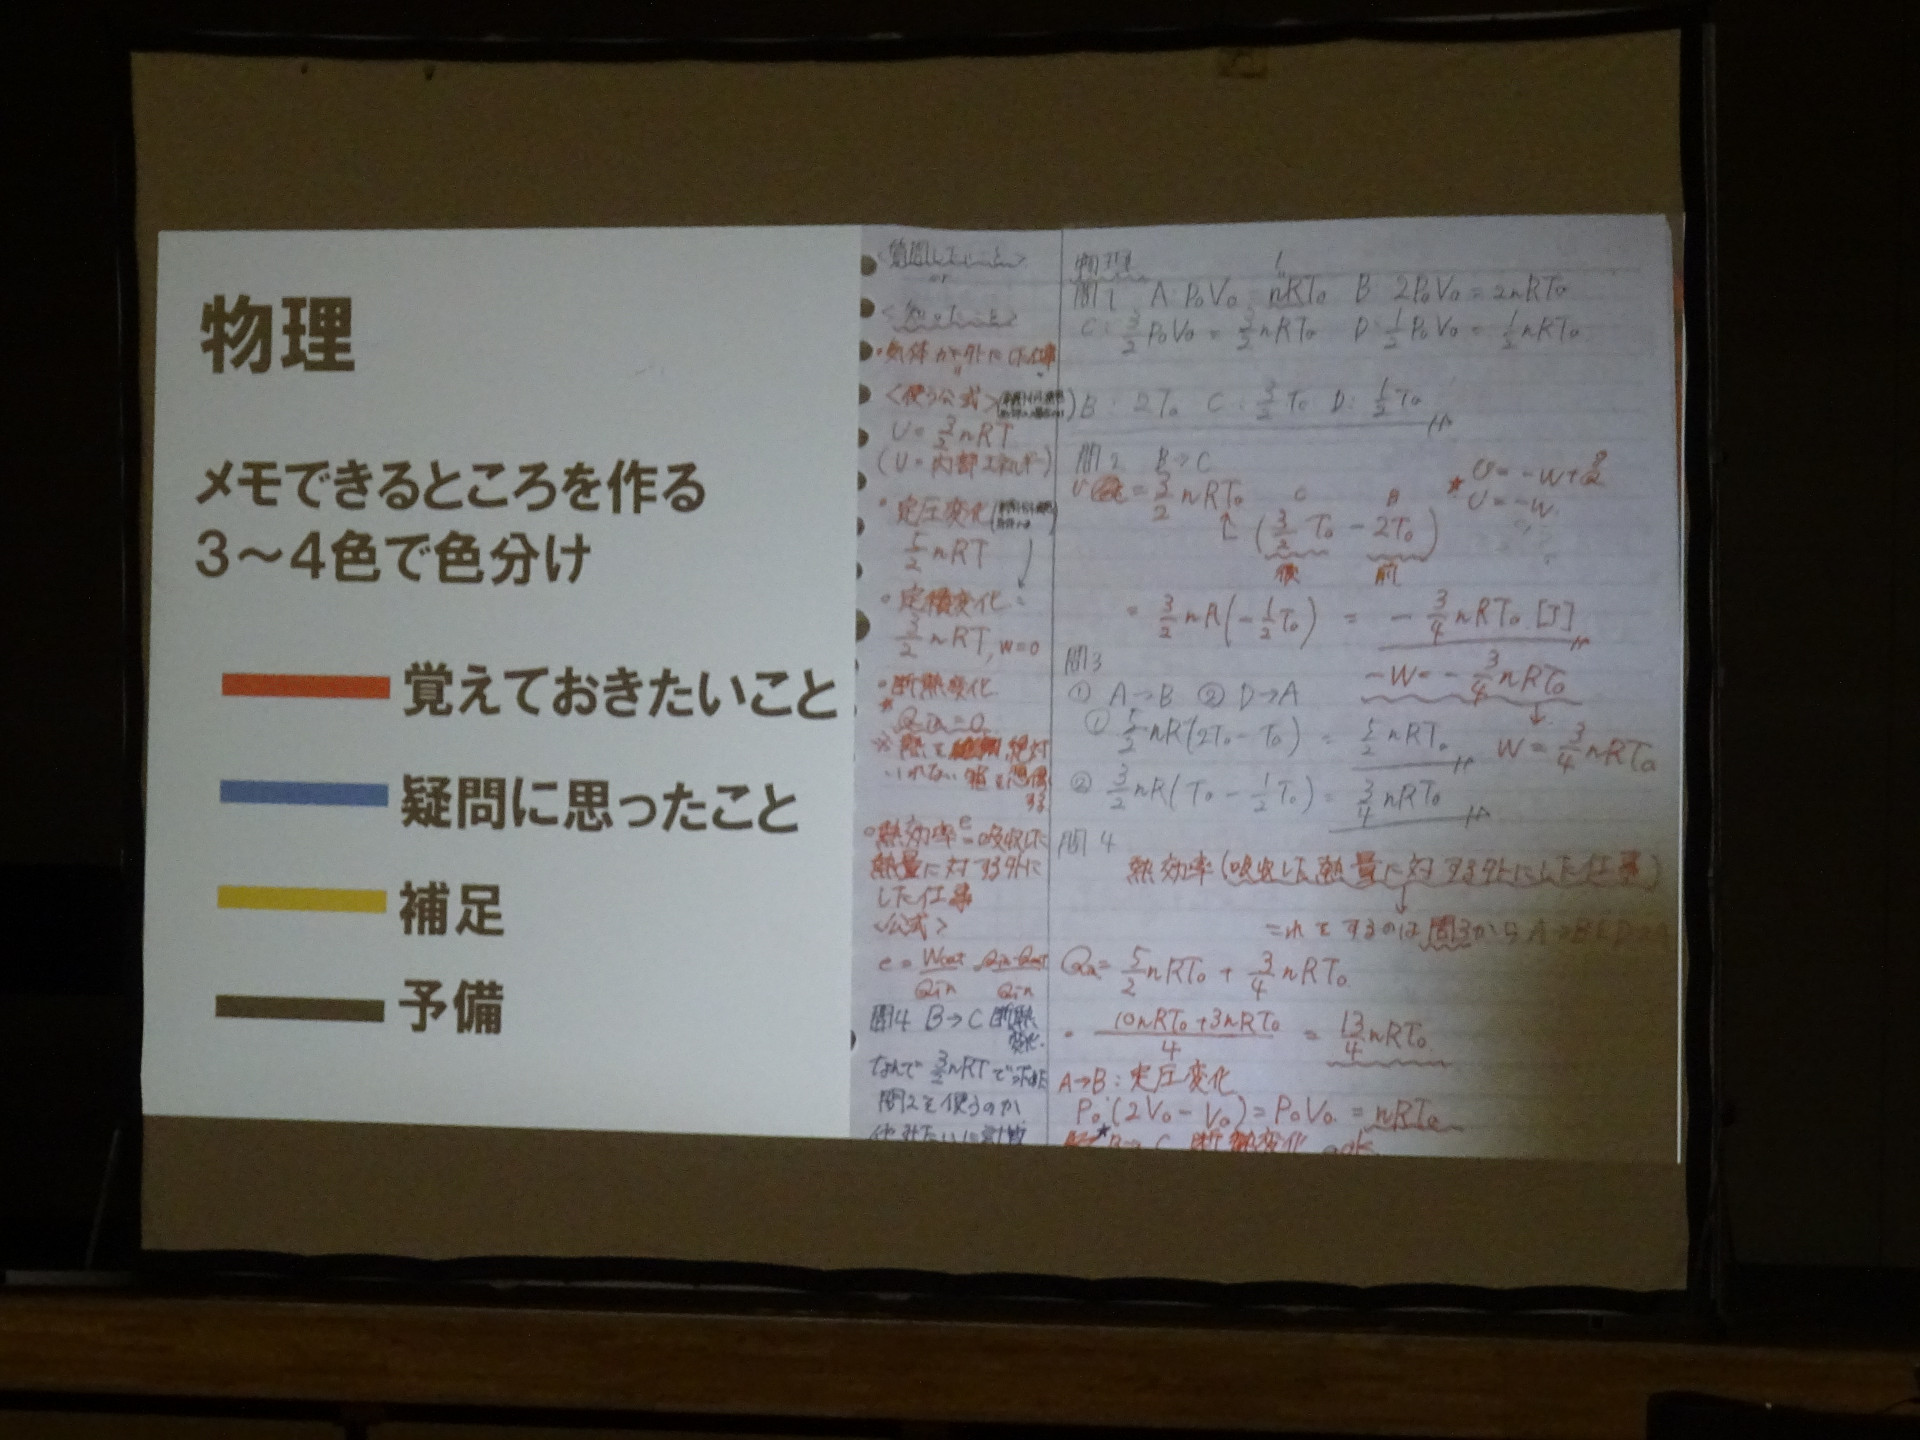 物理
メモできるところを作る
3〜4色で色分け
覚えておきたいこと
疑問に思ったこと
補足
予備
<質問したいこと>
or
・気体が外にした仕事
<使う公式>
U = 3/2 nRT
(U = 内部エネルギー)
・定圧変化
5/2 nRT
・定積変化
3/2 nRT, W=0
・断熱変化
Qin = 0
※熱を 絶対
いれない
する
・熱効率 e = 吸収した
熱量に対する外に
した仕事
<公式>
e = Wout/Qin Qin-Qout/Qin
問4 B→C 断熱
変化
なんで 3/2 nRT で
問2を使うのか
物理
問1 A P₀V₀ = nRT₀ B 2P₀V₀ = 2nRT₀
C: 3/2 P₀V₀ = 3/2 nRT₀ D: 1/2 P₀V₀ = 1/2 nRT₀
B: 2T₀ C: 3/2 T₀ D: 1/2 T₀
問2 B→C
U = -W+Q
U = -W
= 3/2 nRT₀
C B
(3/2 T₀ - 2T₀)
後 前
= 3/2 nR(-1/2 T₀) = -3/4 nRT₀ [J]
問3
-W = -3/4 nRT₀
① A→B ② D→A
① 5/2 nR(2T₀ - T₀) = 5/2 nRT₀
W = 3/4 nRT₀
② 3/2 nR(T₀ - 1/2 T₀) = 3/4 nRT₀
問4
熱効率(吸収した熱量に対する外にした仕事)
これをするのは問3からA→BとD→A
Qin = 5/2 nRT₀ + 3/4 nRT₀
= 10nRT₀+3nRT₀/4 = 13/4 nRT₀
A→B: 定圧変化
P₀(2V₀ - V₀) = P₀V₀ = nRT₀
B→C 断熱変化